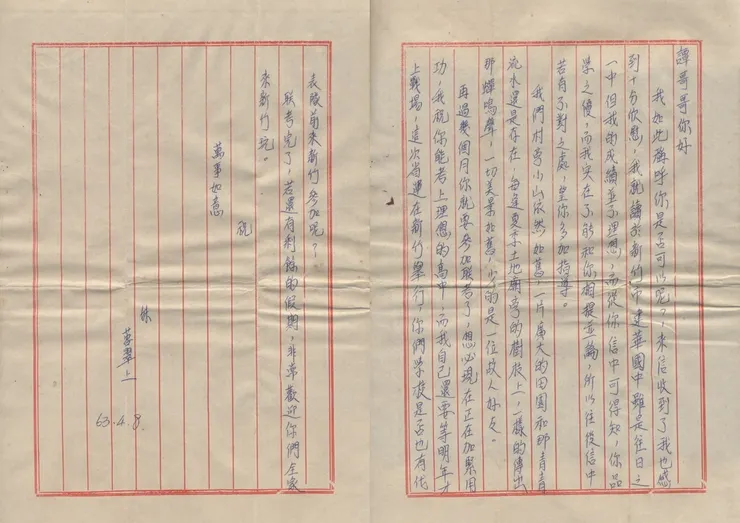 譚哥哥你好
我如此稱呼你是否可以呢?,來信收到了我也感
到十分欣慰,我就讀於新竹市建華國中雖是往日之
一中但我的成績並不理想,而從你信中可得知,你品
學之優,而我实在不能和你相提並論,所以往後信中
若有不對之處,望你多加指導。
我們村旁小山依然如舊,一片廣大的田園和那青青
流水還是存在,每逢夏季土地廟旁的樹枝上,一樣的傳出
那蟬鳴聲,一切美景如舊,少的是一位故人好友。
再過幾個月你就要參加聯考了,想必現在正在加緊用
功,我祝你能考上理想的高中,而我自己還要等明年才
上戰場,這次省運在新竹舉行,你們學校是否也有代
表隊前來新竹參加呢?
联考完了,若還有剩餘的假期,非常歡迎你們全家
來新竹玩。
祝
萬事如意
翠上
63.4.8.